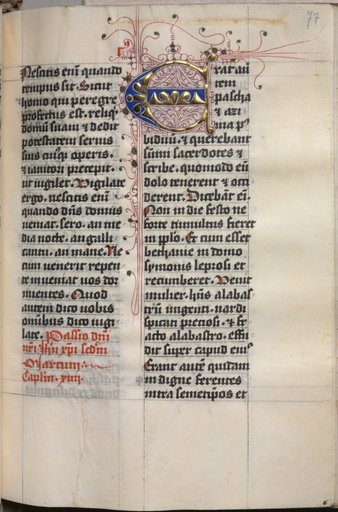 77
Nescitis eni(m) quando
tempus sit. Sicut
homo qui peregre
profectus est. reliq(ui)t
domu(m) suam (et) dedit
potestatem seruis
suis cuiusq(ue) operis.
(et) ianitori precepit.
ut uigilet. Vigilate
ergo. nescitis eni(m)
quando d(omi)n(u)s domus
ueniat. sero. an me
dia nocte. an galli
cantu. an mane. Ne
cum uenerit repen
te inueniat uos dor
mientes. Quod
autem dico uobis
omnibus dico uigi
late. Passio d(omi)ni
n(ost)ri ih(es)u xp(ist)i s(e)c(un)d(u)m
Marcum.
Cap(itu)l(u)m. xiiii.
Erat au(te)m
pascha
(et) azi
ma p(ost)
biduu(m). (et) querebant
su(m)mi sacerdotes (et)
scribe. quomodo eu(m)
dolo tenerent (et) occi
derent. Dicebant eni(m).
Non in die festo ne
forte tumultus fieret
in p(o)p(u)lo. Et cum esset
bethanie in domo
symonis leprosi et
recumberet. Venit
mulier. h(abe)ns alabas
tru(m) ungenti. nardi
spicati preciosi. (et) fr
acto alabastro. effu
dit super caput eius
Erant aute(m) quidam
indigne ferentes
intra semetip(s)os et